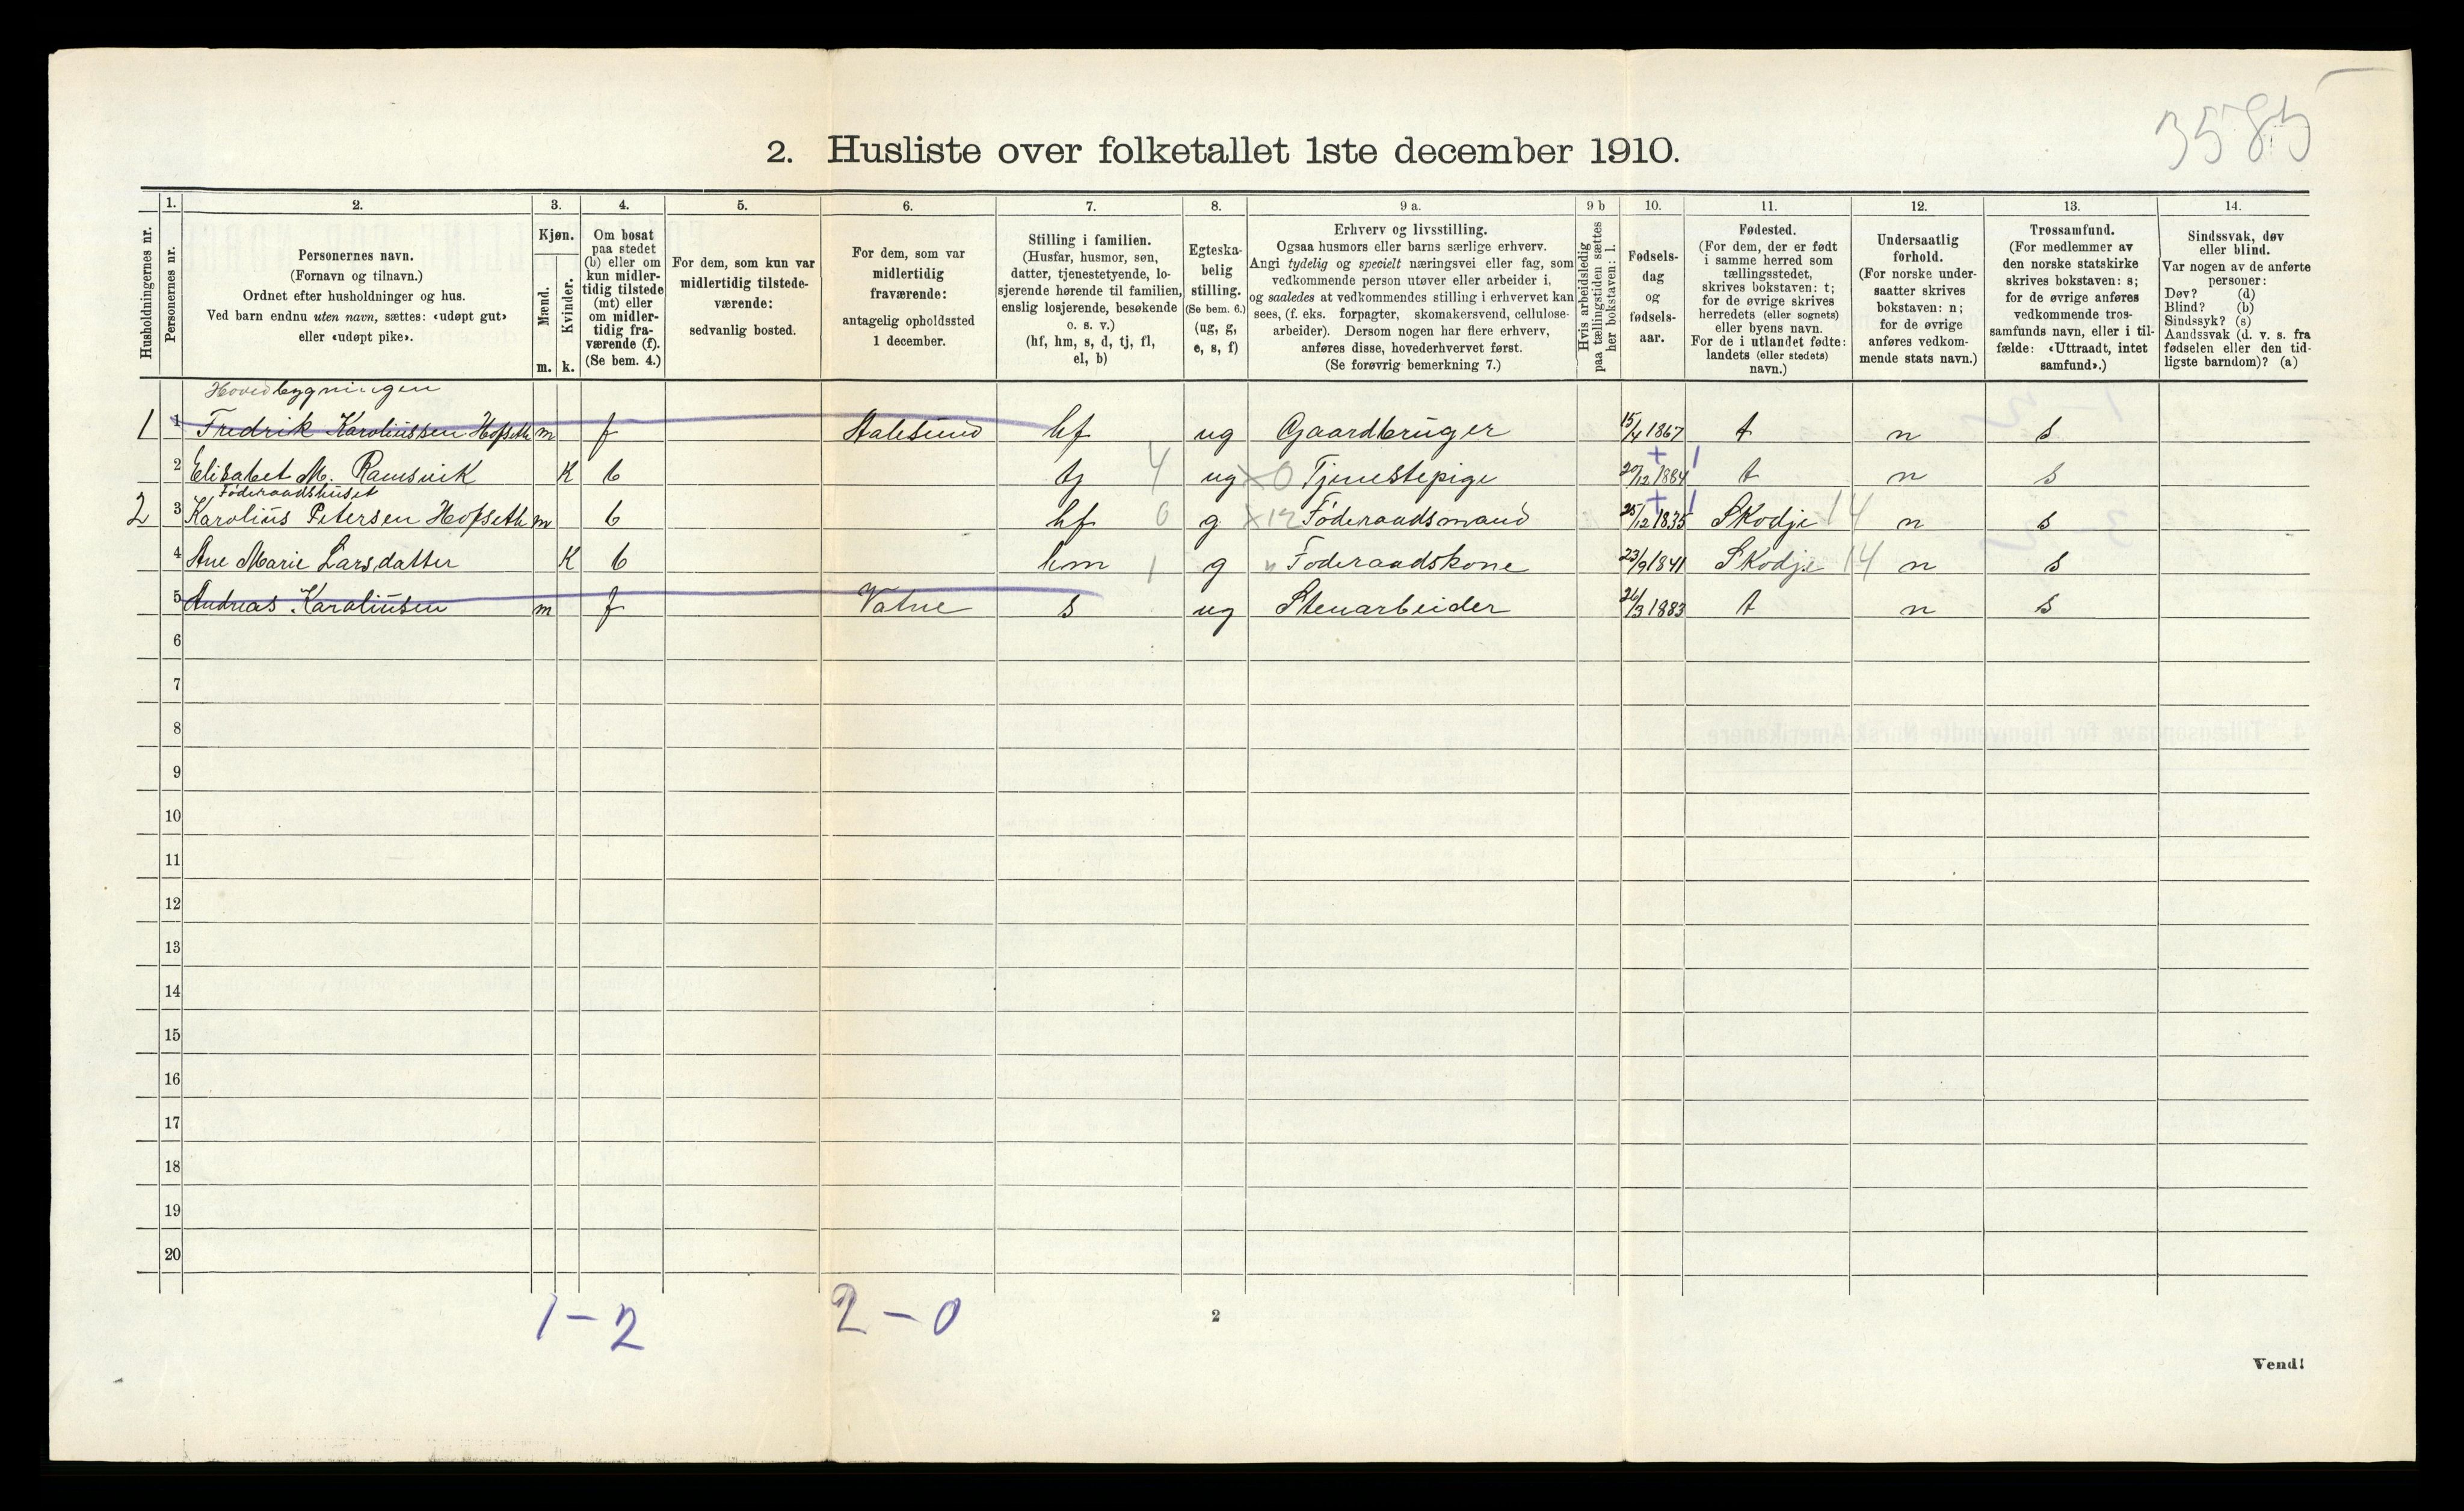 3585
2. Husliste over folketallet 1ste december 1910.
Husholdningernes nr.
1. Personernes nr.
2. Personernes navn. (Fornavn og tilnavn.) Ordnet efter husholdninger og hus. Ved barn endnu uten navn, sættes: «udøpt gut» eller «udøpt pike».
3. Kjøn. Mænd. m. Kvinder. k.
4. Om bosat paa stedet (b) eller om kun midlertidig tilstede (mt) eller om midlertidig fraværende (f). (Se bem. 4.)
5. For dem, som kun var midlertidig tilstedeværende: sedvanlig bosted.
6. For dem, som var midlertidig fraværende: antagelig opholdssted 1 december.
7. Stilling i familien. (Husfar, husmor, søn, datter, tjenestetyende, losjerende hørende til familien, enslig losjerende, besøkende o. s. v.) (hf, hm, s, d, tj, fl, el, b)
8. Egteskabelig stilling. (Se bem. 6.) (ug, g, e, s, f)
9 a. Erhverv og livsstilling. Ogsaa husmors eller barns særlige erhverv. Angi tydelig og specielt næringsvei eller fag, som vedkommende person utøver eller arbeider i, og saaledes at vedkommendes stilling i erhvervet kan sees, (f. eks. forpagter, skomakersvend, cellulosearbeider). Dersom nogen har flere erhverv, anføres disse, hovederhvervet først. (Se forøvrig bemerkning 7.)
9 b Hvis arbeidsledig paa tællingstiden sættes her bokstaven: l.
10. Fødselsdag og fødselsaar.
11. Fødested. (For dem, der er født i samme herred som tællingsstedet, skrives bokstaven: t; for de øvrige skrives herredets (eller sognets) eller byens navn. For de i utlandet fødte: landets (eller stedets) navn.)
12. Undersaatlig forhold. (For norske undersaatter skrives bokstaven: n; for de øvrige anføres vedkommende stats navn.)
13. Trossamfund. (For medlemmer av den norske statskirke skrives bokstaven: s; for de øvrige anføres vedkommende trossamfunds navn, eller i tilfælde: «Uttraadt, intet samfund».)
14. Sindssvak, døv eller blind. Var nogen av de anførte personer: Døv? (d) Blind? (b) Sindssyk? (s) Aandssvak (d. v. s. fra fødselen eller den tidligste barndom)? (a)
Hovedbygningen
1 1 Fredrik Karoliussen Hofseth m f Aalesund hf ug Gaardbruger 15/4 1867 t n s
2 Elisabet M. Ramsvik K b tj 4 ug x0 Tjenestepige 20/12 1884 + 1 t n s
Føderaadshuset
2 3 Karolius Petersen Hofseth m b hf 0 g x12 Føderaadsmand 25/12 1835 + 1 Skodje 14 n s
4 Ane Marie Larsdatter K b hm 1 g " Føderaadskone 23/9 1841 Skodje 14 n s
5 Andreas Karoliusen m f Vatne s ug Stenarbeider 26/3 1883 t n s
6
7
8
9
10
11
12
13
14
15
16
17
18
19
20
1 - 2 2 - 0
2
Vend!